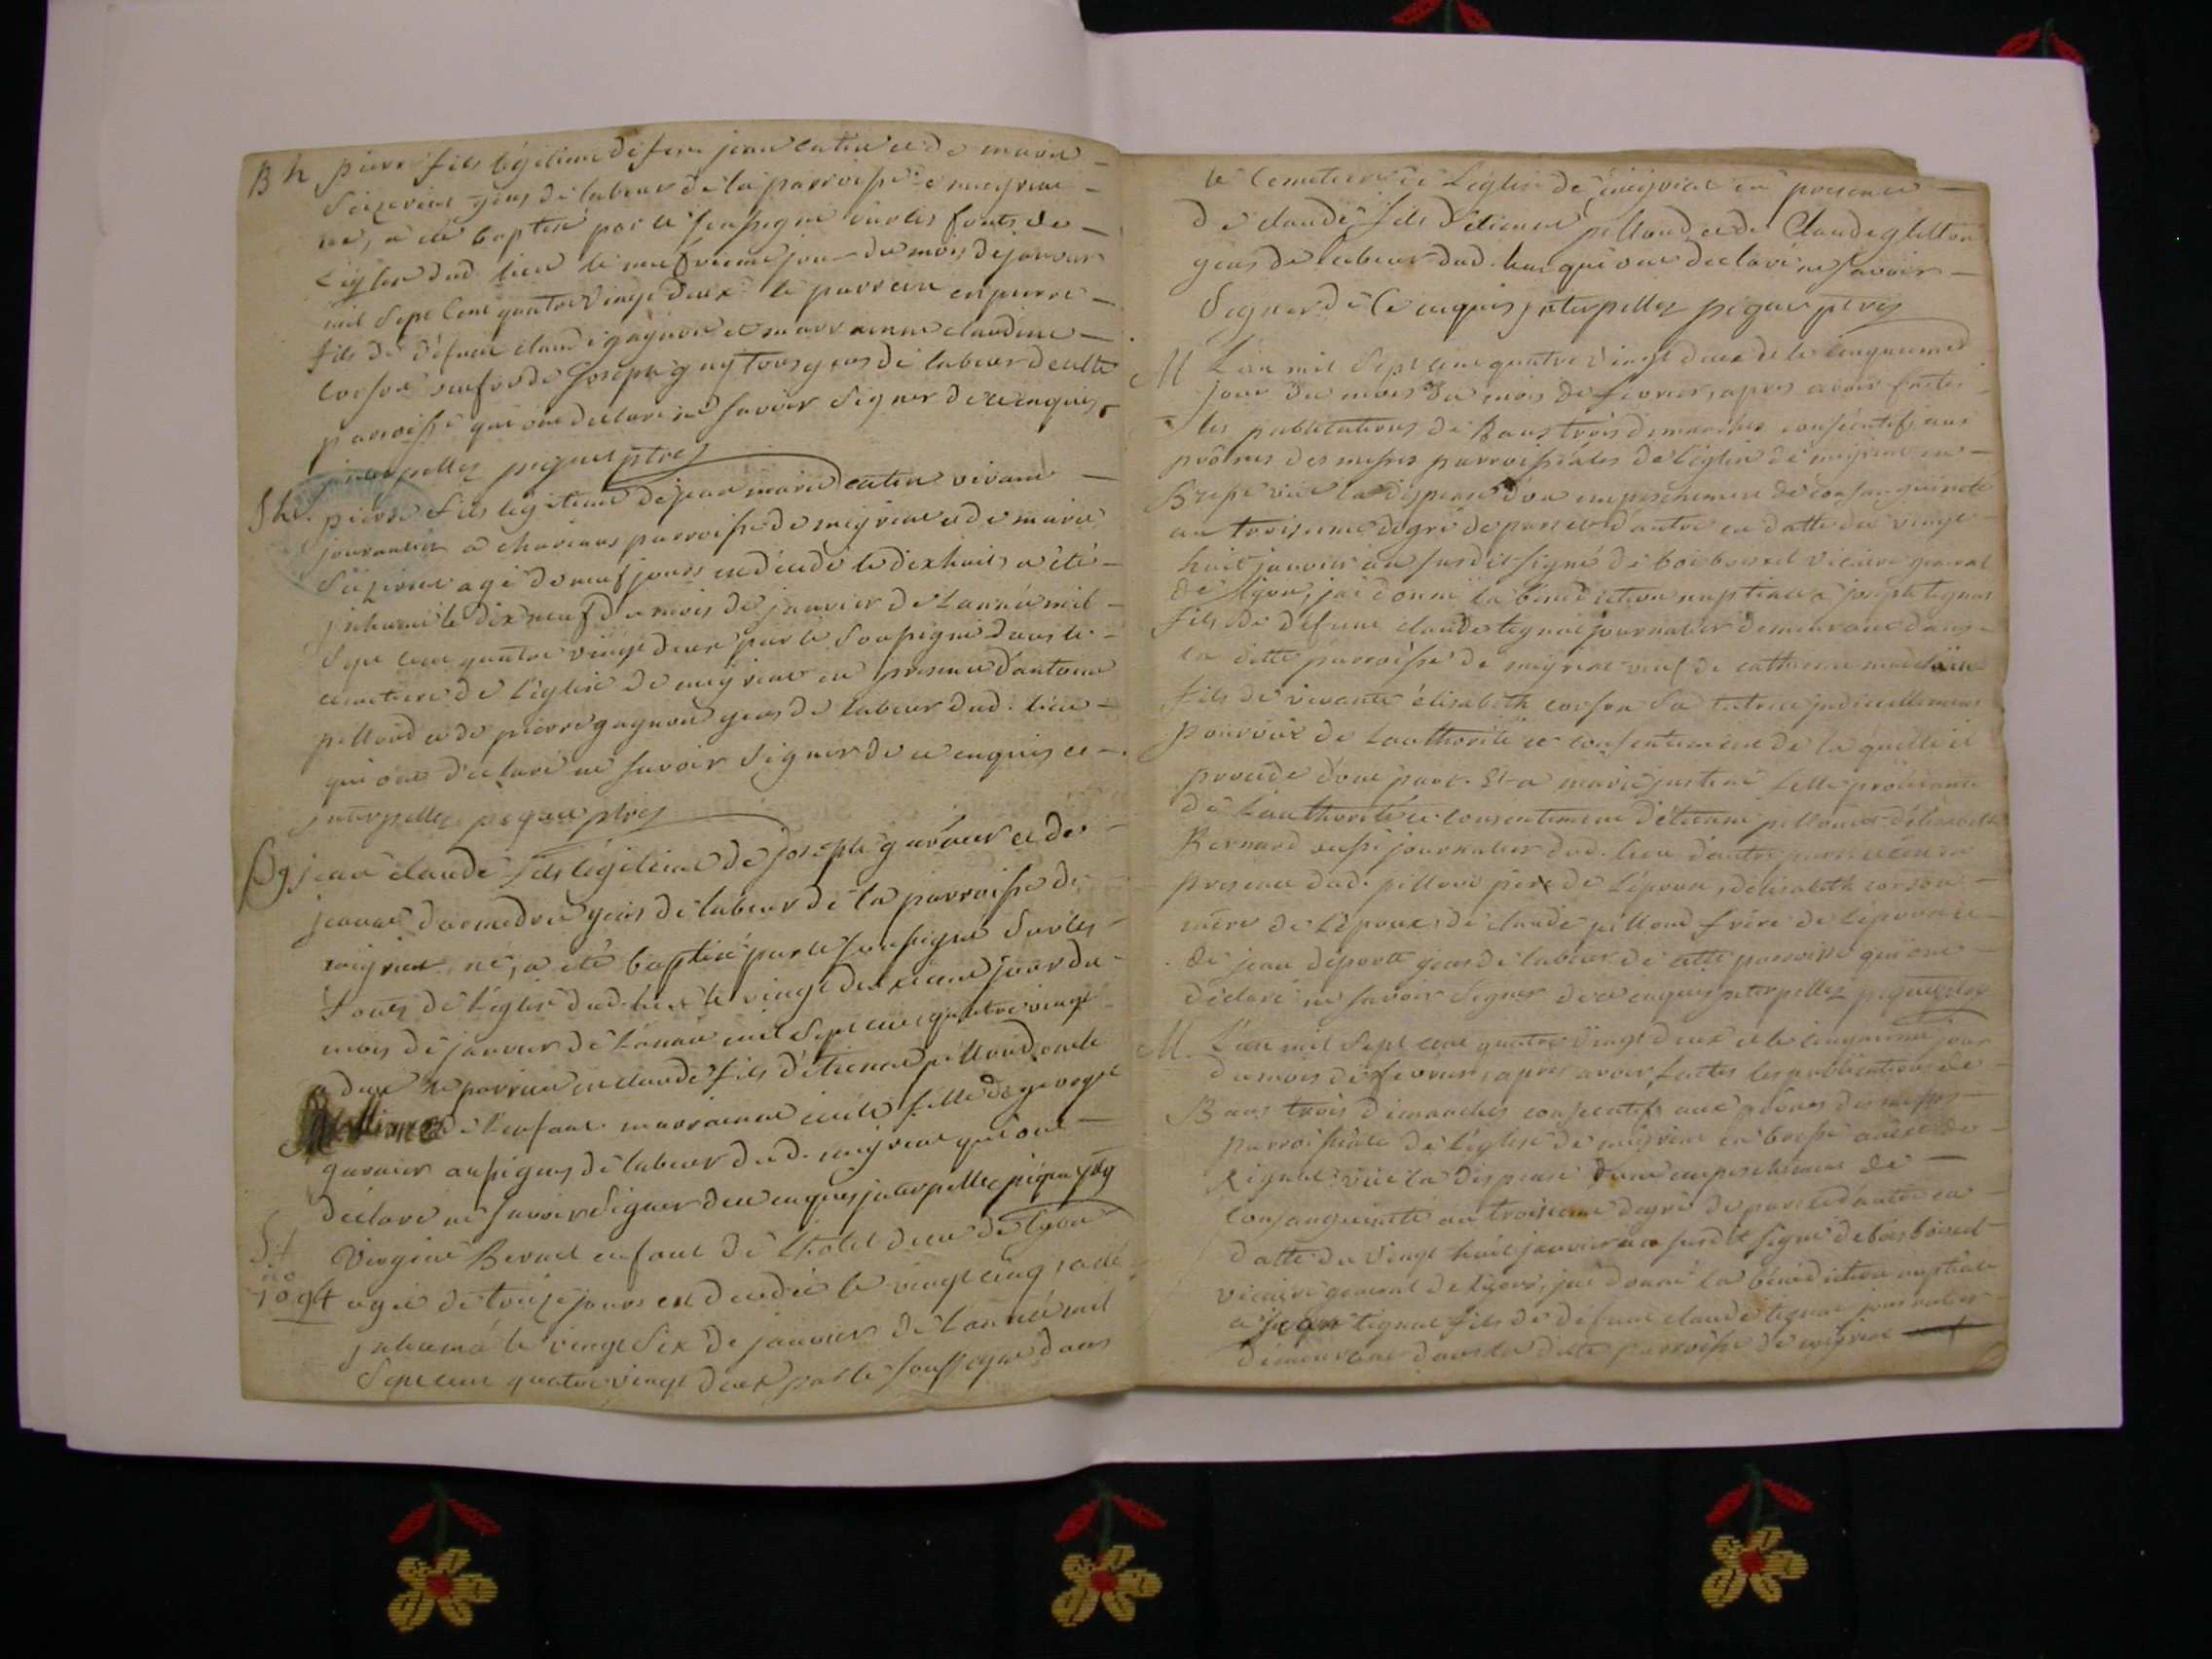 B h pierre fils légitime de jean catin et de marie
Seizerieu gens de labeur de la parroisse de meyriat
né, a été baptisé par le soussigné sur les fonts de
L'église dud. lieu le neufvieme jour du mois de janvier
mil sept cent quatre vingt deux le parrein est pierre
fils de défunt claude gagnon et marrainne claudine
corson veufve de Joseph guy tous gens de labeur de cette
parroisse qui ont déclaré ne savoir signer de ce enquis
interpellez piquet ptre
Sh. pierre fils légitime de jean marie catin vivant
journalier a parroisse de meyriat et de marie
Seizerieu agé de neuf jours est décédé le dix huit, a été
inhumé le dix neuf du mois de janvier de l'année mil
sept cent quatre vingt deux par le soussigné dans le
cemetiere de l'église de meyriat en presence d'antoine
pilloud et de pierre gagnon gens de labeur dud. lieu
qui ont déclaré ne savoir signer de ce enquis et
interpellez piquet ptre
Bg jean claude fils légitime de joseph garnier et de
jeanne gens de labeur de la parroisse de
meyriat, né, a été baptisé par le soussigné sur les
fonts de l'église dud. lieu le vingt deuxieme jour du
mois de janvier de l'année mil sept cent quatre vingt
deux le parrein est claude fils d'étienne pilloud oncle
de l'enfant marrainne fille de george
garnier aussi gens de labeur dud. meyriat qui ont
déclaré ne savoir signer de ce enquis interpellez piquet ptre
St
no
109t
Virginé enfant de l'hotel dieu de Lyon
agée de treize jours est decedée le vingt cinq, a été
inhumé le vingt six de janvier de l'année mil
sept cent quatre vingt deux par le soussigné dans
le Cemetiere de L'église de meyriat en presence
de claude fils d'étienne pilloud et de Claude
gens de labeur dud. lieu qui ont declaré ne savoir
Signer de Ce enquis interpellez piquet ptre
M L'an mil sept cent quatre vingt deux et le cinquieme
jour du mois du mois de fevrier, apres avoir faites
les publications de Bans trois dimanches consécutifs aux
prônes des messes parroissiales de l'église de meyriat en
Bresse vüe la dispense d'un empeschement de consanguinité
au troisieme degré de part et d'autre en datte du vingt
huit janvier an susdit signé de bois boissel vicaire general
de Lyon, j'ai donné la bénédiction nuptiale a joseph tignat
fils de défunt claude tignat journalier demeurant dans
la ditte parroisse de meyriat veuf de catherine
fils de vivante élisabeth corson sa tutrice judiciellement
pourvüe de l'authorité et consentement de laquelle il
procéde d'une part. Et a marie justine fille procédante
de l'authorité et consentement d'étienne pilloud et d'élisabeth
Bernard aussi journalier dud. lieu d'autre part et en
presence dud. pilloud pere de l'épouse, d'élisabeth corson
mère de l'époux, de claude pilloud frère de l'épouse
de jean deporte gens de labeur de cette parroisse qui ont
déclaré ne savoir signer de ce enquis interpellez piquet ptre
M. L'an mil sept cent quatre vingt deux et le cinquieme jour
du mois de fevrier, apres avoir faites les publications de
Bans trois dimanches consecutifs aux prônes des messes
parroissiales de l'église de meyriat en bresse annexe de
Rignat vüe la dispense d'un empeschement de
consanguinité au troisieme degré de part et d'autre en
datte du vingt huit janvier an susdit signé de bois boissel
vicaire general de Lyon, j'ai donné la bénédiction nuptiale
a joseph tignat fils de défunt claude tignat journalier
demeurant dans la ditte parroisse de meyriat veuf